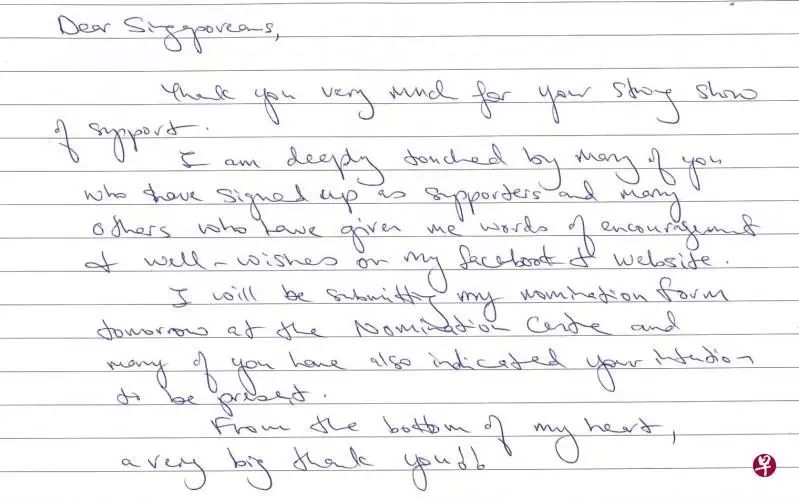 Dear Singaporeans,
Thank you very much for your strong show
of support.
I am deeply touched by many of you
who have signed up as supporters and many
others who have given me words of encouragement
& well-wishes on my facebook & website.
I will be submitting my nomination form
tomorrow at the Nomination Centre and
many of you have also indicated your intention
to be present.
From the bottom of my heart,
a very big thank you
早